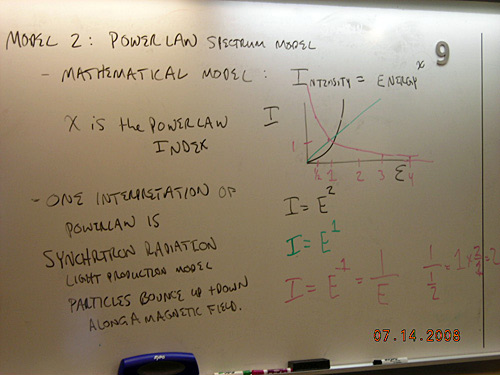 MODEL 2: POWERLAW SPECTRUM MODEL
9
- MATHEMATICAL MODEL: INTENSITY = ENERGY^x
X IS THE POWERLAW
INDEX
I
1
½ 1 2 3 4
E
- ONE INTERPRETATION OF
POWERLAW IS
SYNCHRTRON RADIATION
LIGHT PRODUCTION MODEL
PARTICLES BOUNCE UP + DOWN
ALONG A MAGNETIC FIELD.
I = E^2
I = E^1
I = E^-1 = 1/E
1/(1/2) = 1 x 2/1 = 2
07.14.2008